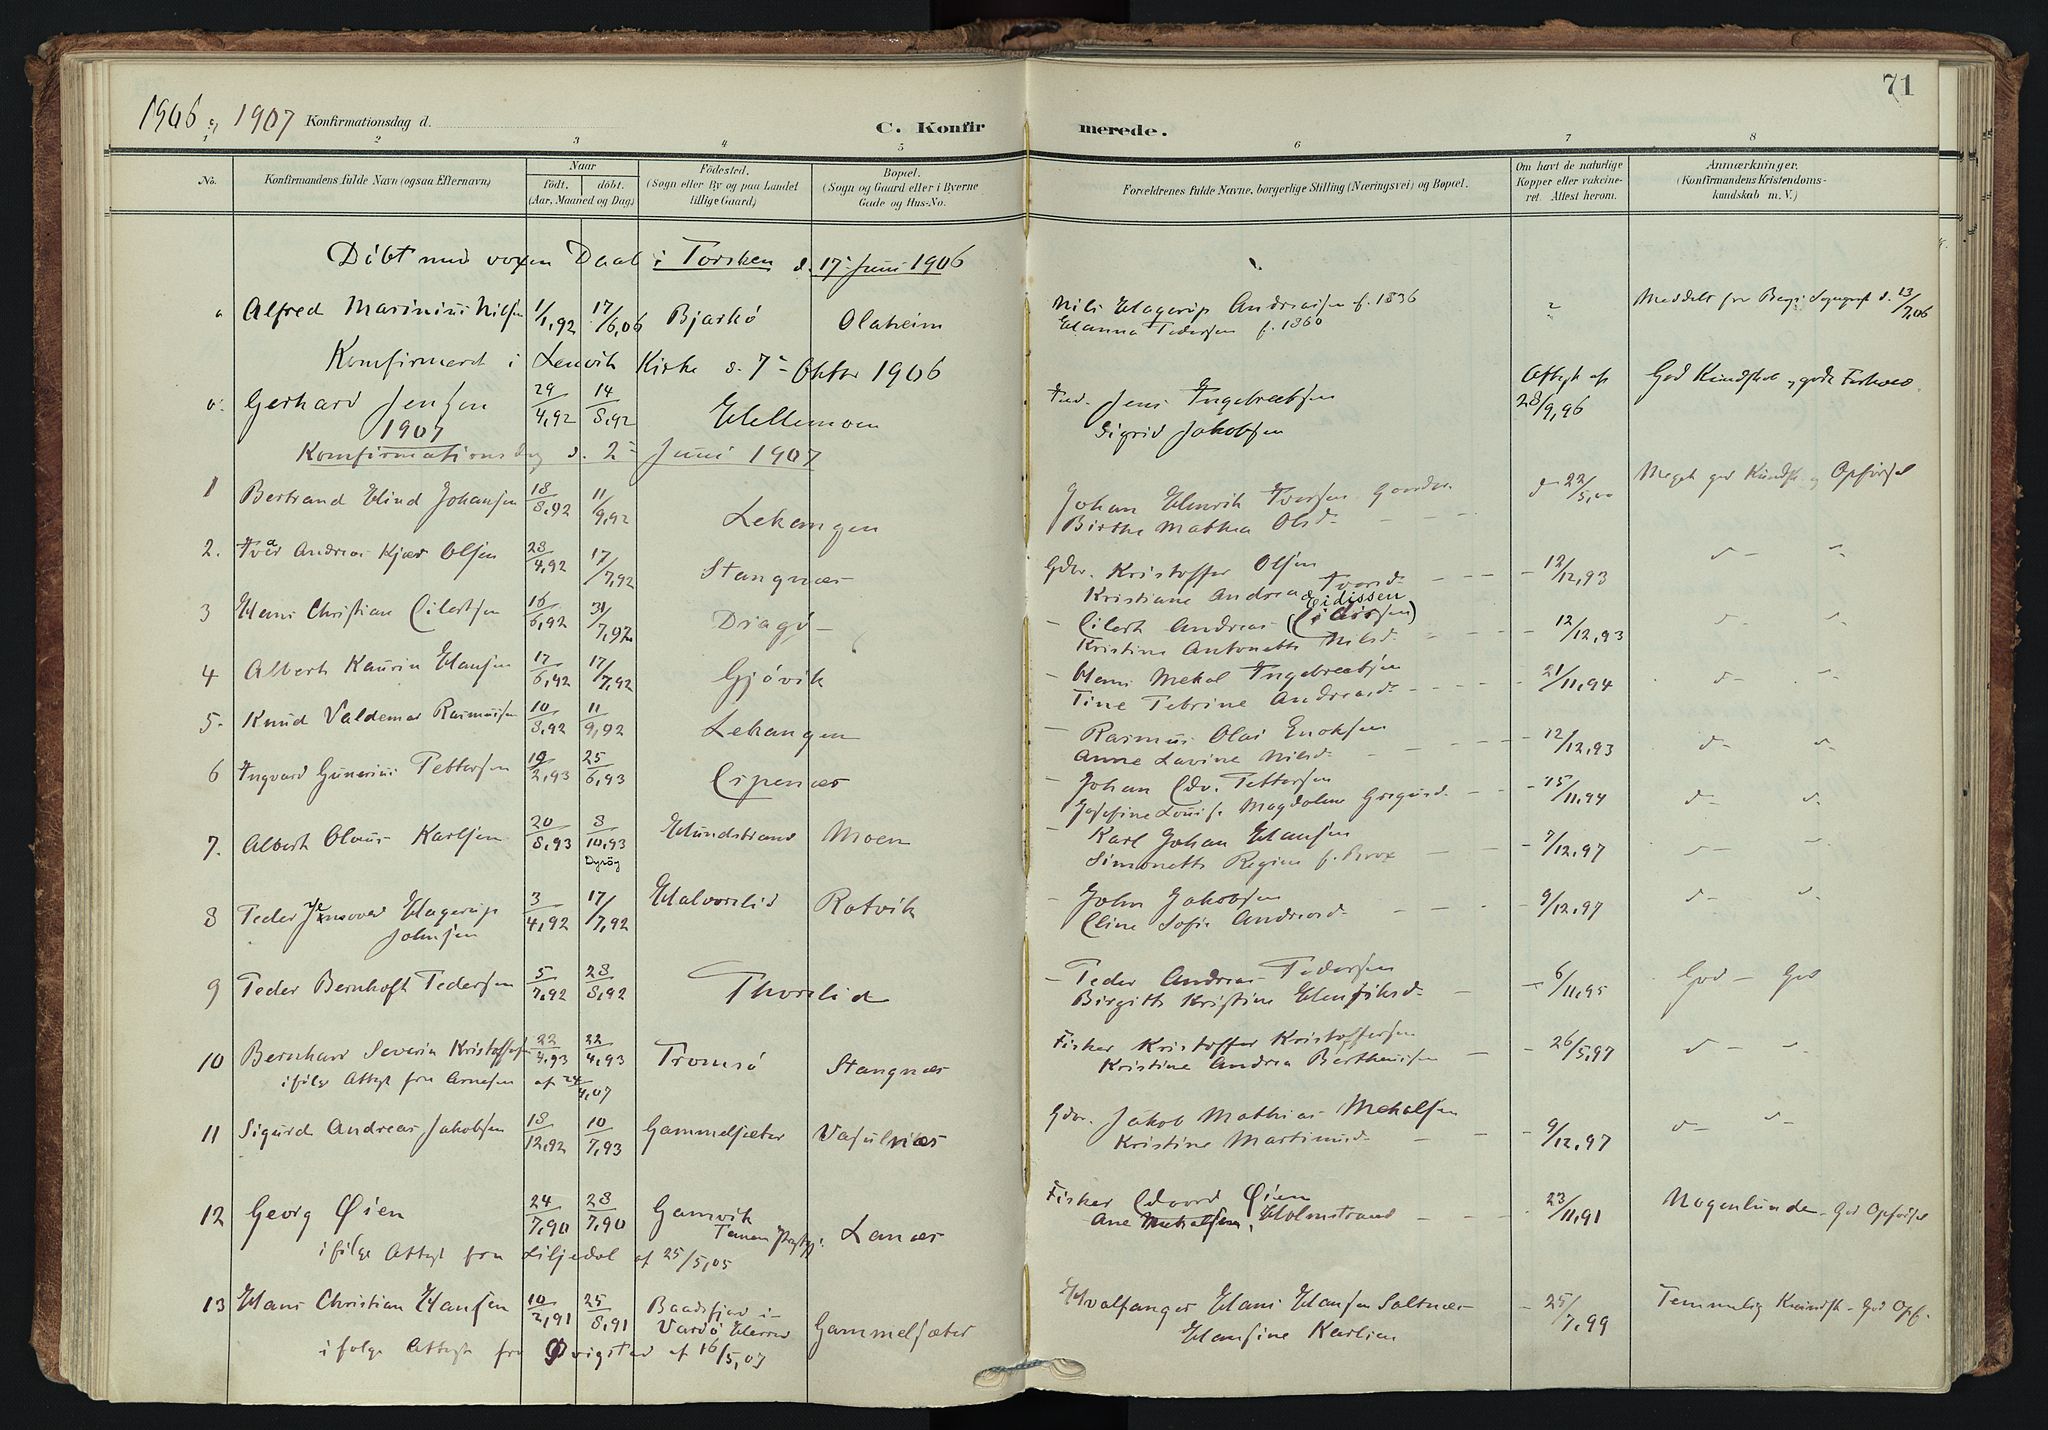 71
1906 og 1907 Konfirmationsdag d.
C. Konfirmerede.
1 2 3 4 5 6 7 8
No. Konfirmandens fulde Navn (ogsaa Efternavn) Naar født, døbt. (Aar, Maaned og Dag) Fødested. (Sogn eller By og paa Landet tillige Gaard) Bopæl. (Sogn og Gaard eller i Byerne Gade og Hus-No. Forældrenes fulde Navne, borgerlige Stilling (Næringsvei) og Bopæl. Om havt de naturlige Kopper eller vaccineret. Attest herom. Anmærkninger. (Konfirmandens Kristendomskundskab m. V.)
Døbt med voxen Daab i Torsken d. 17 Juni 1906
Alfred Marinius Nilsen 1/1,92 17/6,06 Bjarkø Olaheim Nils Hagerup Andreassen f. 1836 Meddelt fra 13/7,06
Hanna Pedersen f. 1860
Konfirmeret i Lenvik Kirke d. 7 Oktbr 1906
Gerhard Jensen 29/4,92 14/8,92 Hellemoen Jens Ingebretsen Attest af 28/9,96 God Kundskab, gode Forhold
Sigrid Jakobsen
1907
Konfirmationsdag d. 2 Juni 1907
1 Bertrand Elind Johansen 18/8,92 11/9,92 Lekangen Johan Henrik Iversen Gaardbr. d 22/5,00 Meget god Kundsk. og Opførsel
Birthe Mathea Olsd.
2. Ivar Andreas Kjær Olsen 28/4,92 17/7,92 Stangnæs Gbr. Kristoffer Olsen 12/12,93 d- d-
Kristiane Andrea Iversd.
3 Hans Christian Eilertsen 16/6,92 31/7,92 Dragø Eilert Andreas Eidissen (Eilertsen) 12/12,93
Kristine Antonette Nilsd.
4 Albert Kaurin Hansen 17/6,92 17/7,92 Gjøvik Hans Mekal Ingebretsen 21/11,94 d-
Tine Petrine Andreasd.
5. Knud Valdemar Rasmussen 10/8,92 11/9,92 Lekangen Rasmus Olai Enoksen 12/12,93 d- d-
Anne Lavine Nilsd.
6 Ingvard Gunerius Pettersen 19/2,93 25/6,93 Espenæs Johan Edv. Pettersen 15/11,94 d- d-
Josefine Louise Magdalene Gregersd.
7. Albert Olaus Karlsen 20/8,93 8/10,93 Dyrøy Hundstrand Moen Karl Johan Hansen 7/12,97 d-
Simonette Regine f. Brox
8 Peder Jensover Hagerup Johnsen 3/4,92 17/7,92 Halvorslid Rotvik John Jakobsen 9/12,97 d-
Eline Sofie Andreasd.
9 Peder Bernhoft Pedersen 5/7,92 28/8,92 Thorslid Peder Andreas Pedersen 6/11,95 God - God
Birgitte Kristine Henriksd.
10 Bernhard Severin Kristoffersen 22/4,93 22/4,93 Tromsø Stangnæs Fisker Kristoffer Kristoffersen 26/5,97 d-
ifølge Attest fra Arnesen af 24/4,07 Kristine Andrea Bertheussen
11 Sigurd Andreas Jakobsen 18/12,92 10/7,93 Gammelsæter Vasulnæs Gbr. Jakob Mathias Mekalsen 9/12,97 d- d-
Kristine Martinusd.
12 Georg Øien 24/7,90 28/7,90 Gamvik Tanen Præstgj. Lanæs Fisker Edvard Øien 23/11,91 Nogenlunde - God Opførsel
Ane Mekalsen, Holmstrand
ifølge Attest fra Liljedal af 25/5,05
13 Hans Christian Hansen 10/2,91 25/8,91 Baadsfjord i Vardø Herred Gammelsæter Hvalfanger Hans Hansen Saltnæs 25/7,99 Temmelig Kundsk - God Opf.
Hansine Karlsen
ifølge Attest fra Qvigstad af 16/5,07